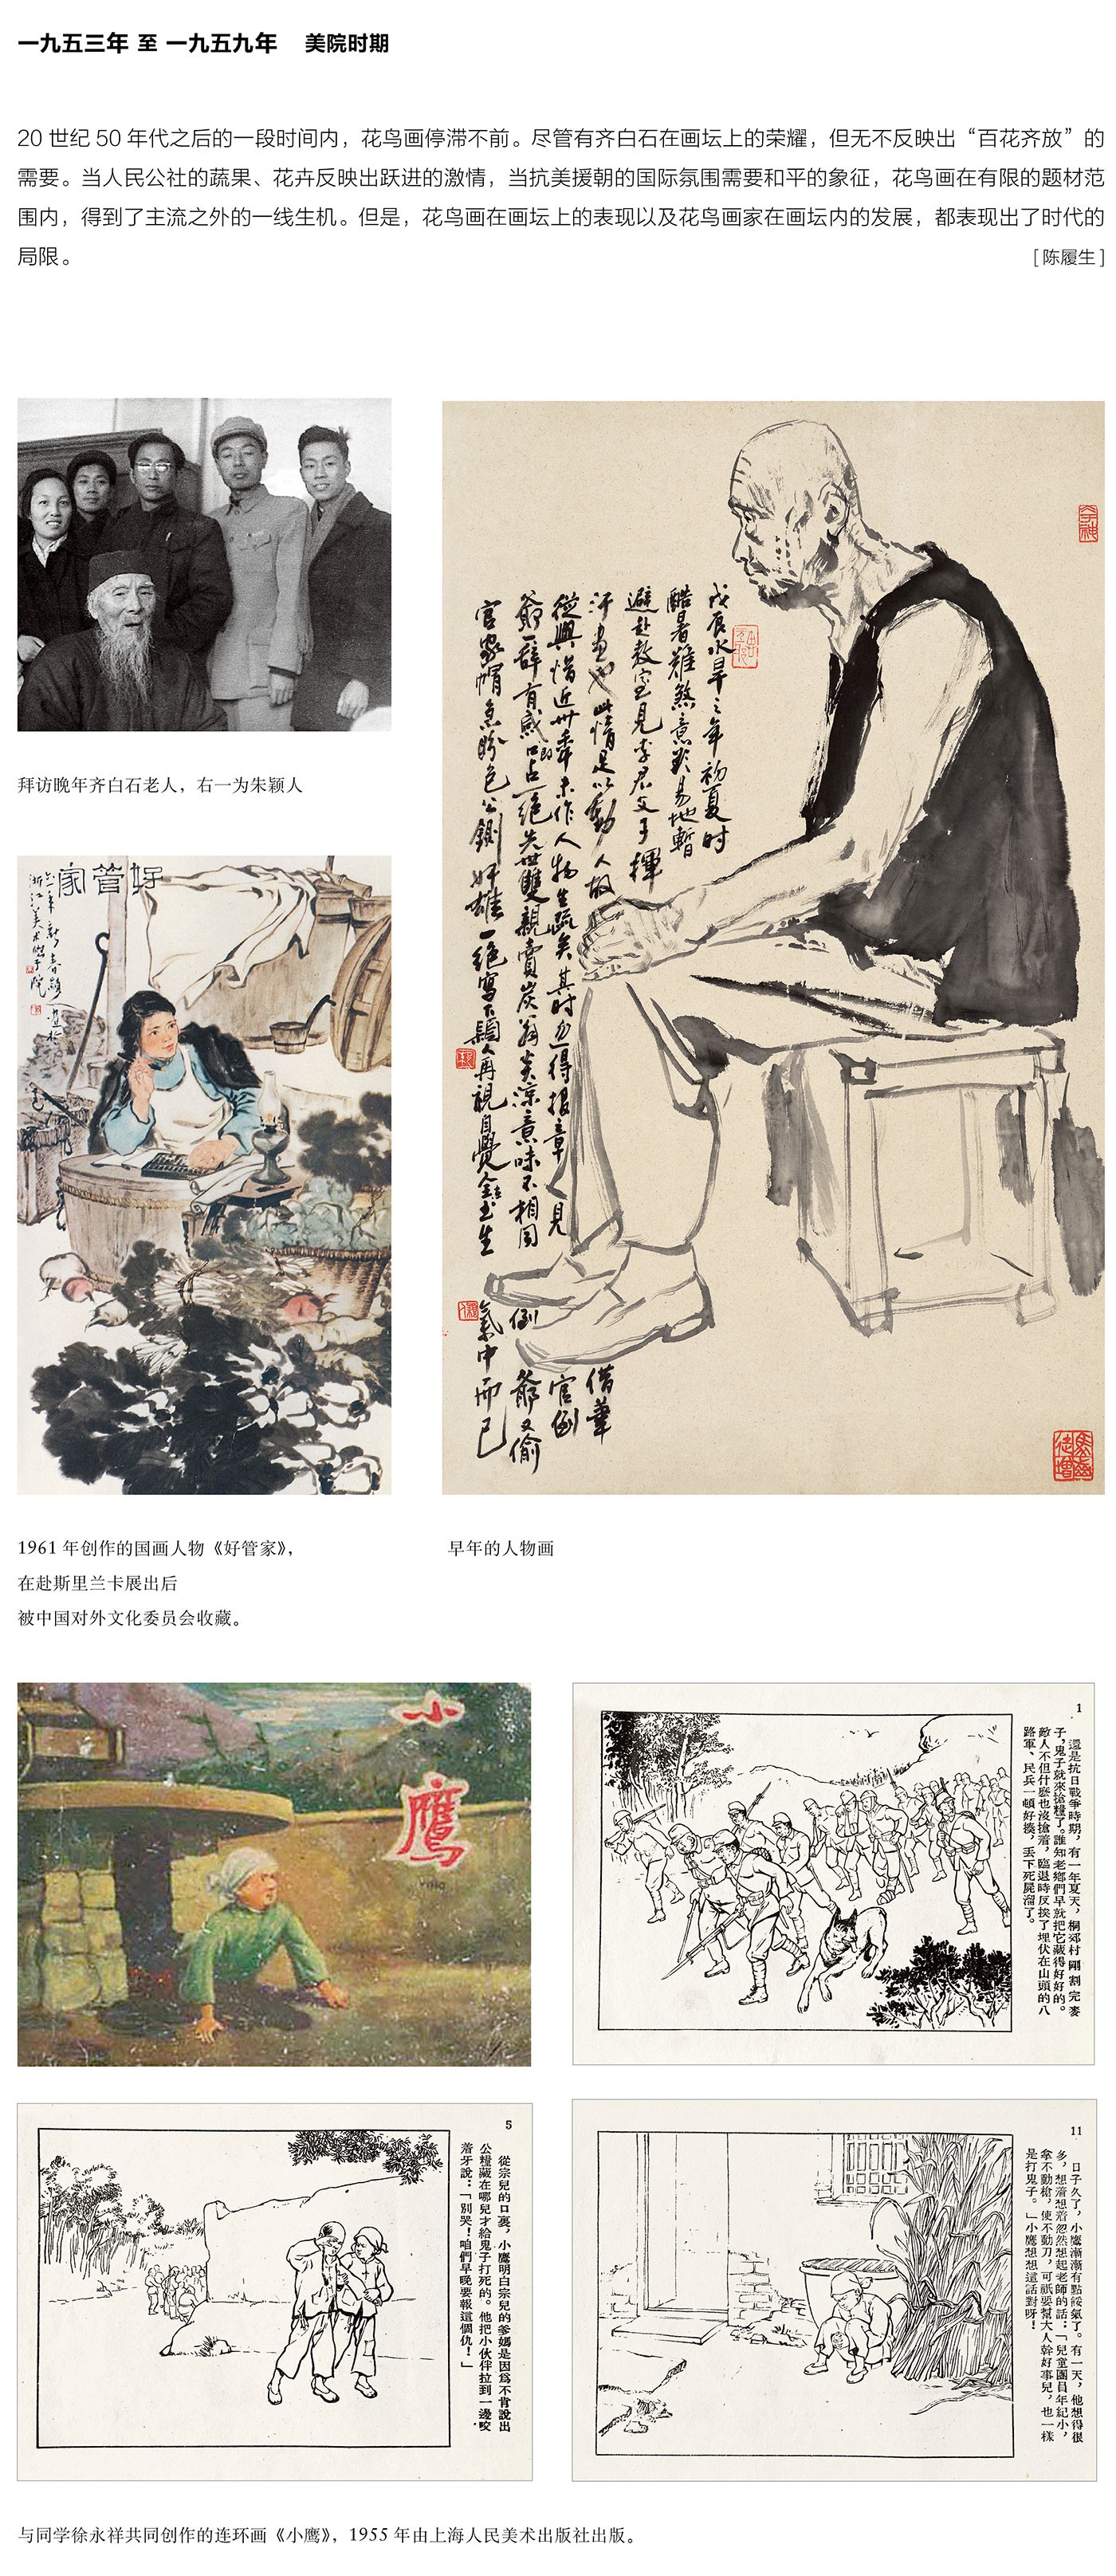 一九五三年 至 一九五九年 美院时期
20 世纪 50 年代之后的一段时间内，花鸟画停滞不前。尽管有齐白石在画坛上的荣耀，但无不反映出“百花齐放”的
需要。当人民公社的蔬果、花卉反映出跃进的激情，当抗美援朝的国际氛围需要和平的象征，花鸟画在有限的题材范
围内，得到了主流之外的一线生机。但是，花鸟画在画坛上的表现以及花鸟画家在画坛内的发展，都表现出了时代的
局限。
［陈履生］
拜访晚年齐白石老人，右一为朱颖人
好管家
浙江美术学院
戊辰水旱之年初夏时
酷暑难煞意欲易地暂
避赴教室见李君文子挥
汗画也此情是以动人故借笔
从兴惜近卅年未作人物生疏矣其时也得报章人见官倒
爷一辞有感即口占一绝先世双亲卖炭翁炎凉意味不相同倒爷又偷
官家帽
氣中而已
1961 年创作的国画人物《好管家》，
在赴斯里兰卡展出后
被中国对外文化委员会收藏。
早年的人物画
小鹰
1
還是抗日戰爭時期，有一年夏天，桐郊村剛割完麥
子，鬼子就來搶糧了。誰知老鄉們早就把它藏得好好的。
敵人不但什麽也沒搶着，臨退時反挨了埋伏在山頭的八
路軍、民兵一頓好揍，丢下死屍溜了。
5
從宗兒的口裏，小鷹明白宗兒的爹媽是因爲不肯說出
公糧藏在哪兒才給鬼子打死的。他把小伙伴拉到一邊咬
着牙說：「別哭！咱們早晚要報這個仇！」
11
日子久了，小鷹漸漸有點餒氣了。有一天，他想得很
多，想着想着忽然想起老師的話：「兒童團員年紀小，
拿不動槍，使不動刀，可祇要幫大人幹好事兒，也一樣
是打鬼子。」小鷹想想這話對呀！
与同学徐永祥共同创作的连环画《小鹰》，1955 年由上海人民美术出版社出版。